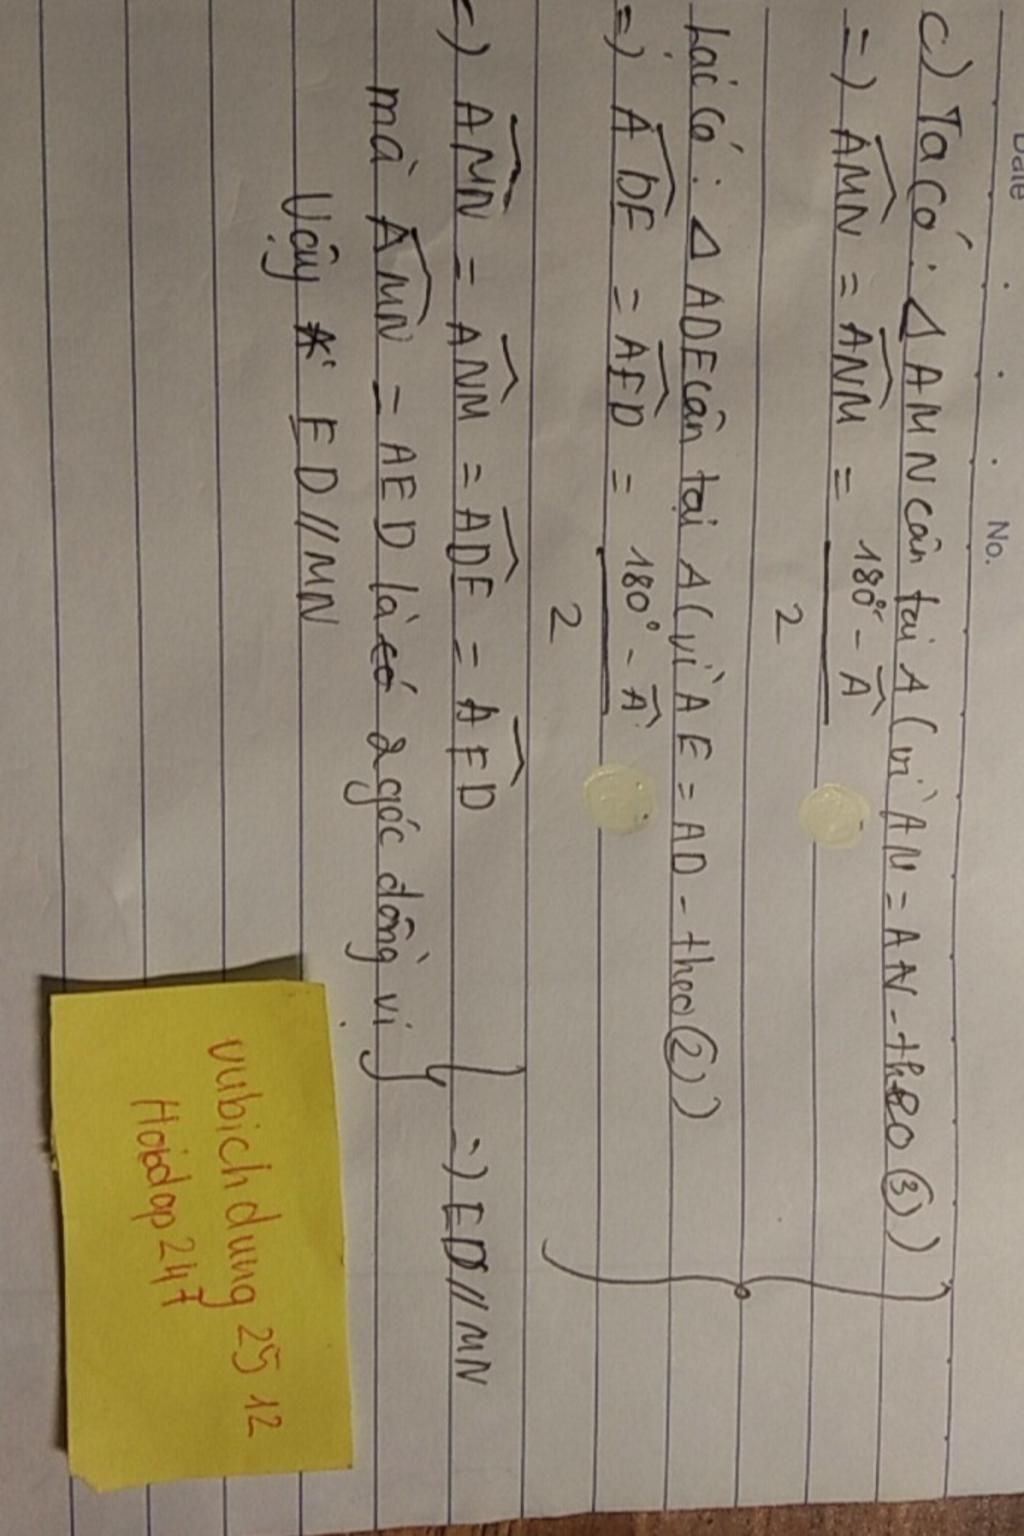 Date No.
c) Ta có: Δ AMN cân tại A (vì AM = AN - theo ③)
=) AMN = ANM = 180° - A
2
Lại có: Δ ADE cân tại A (vì AE = AD - theo ②)
=) ADE = AED = 180° - A
2
=) AMN = ANM = ADE = AED
mà AMN = AED là có 2 góc đồng vị
=) ED // MN
Vậy ED // MN
vubichdung 25 12
Hoidap247